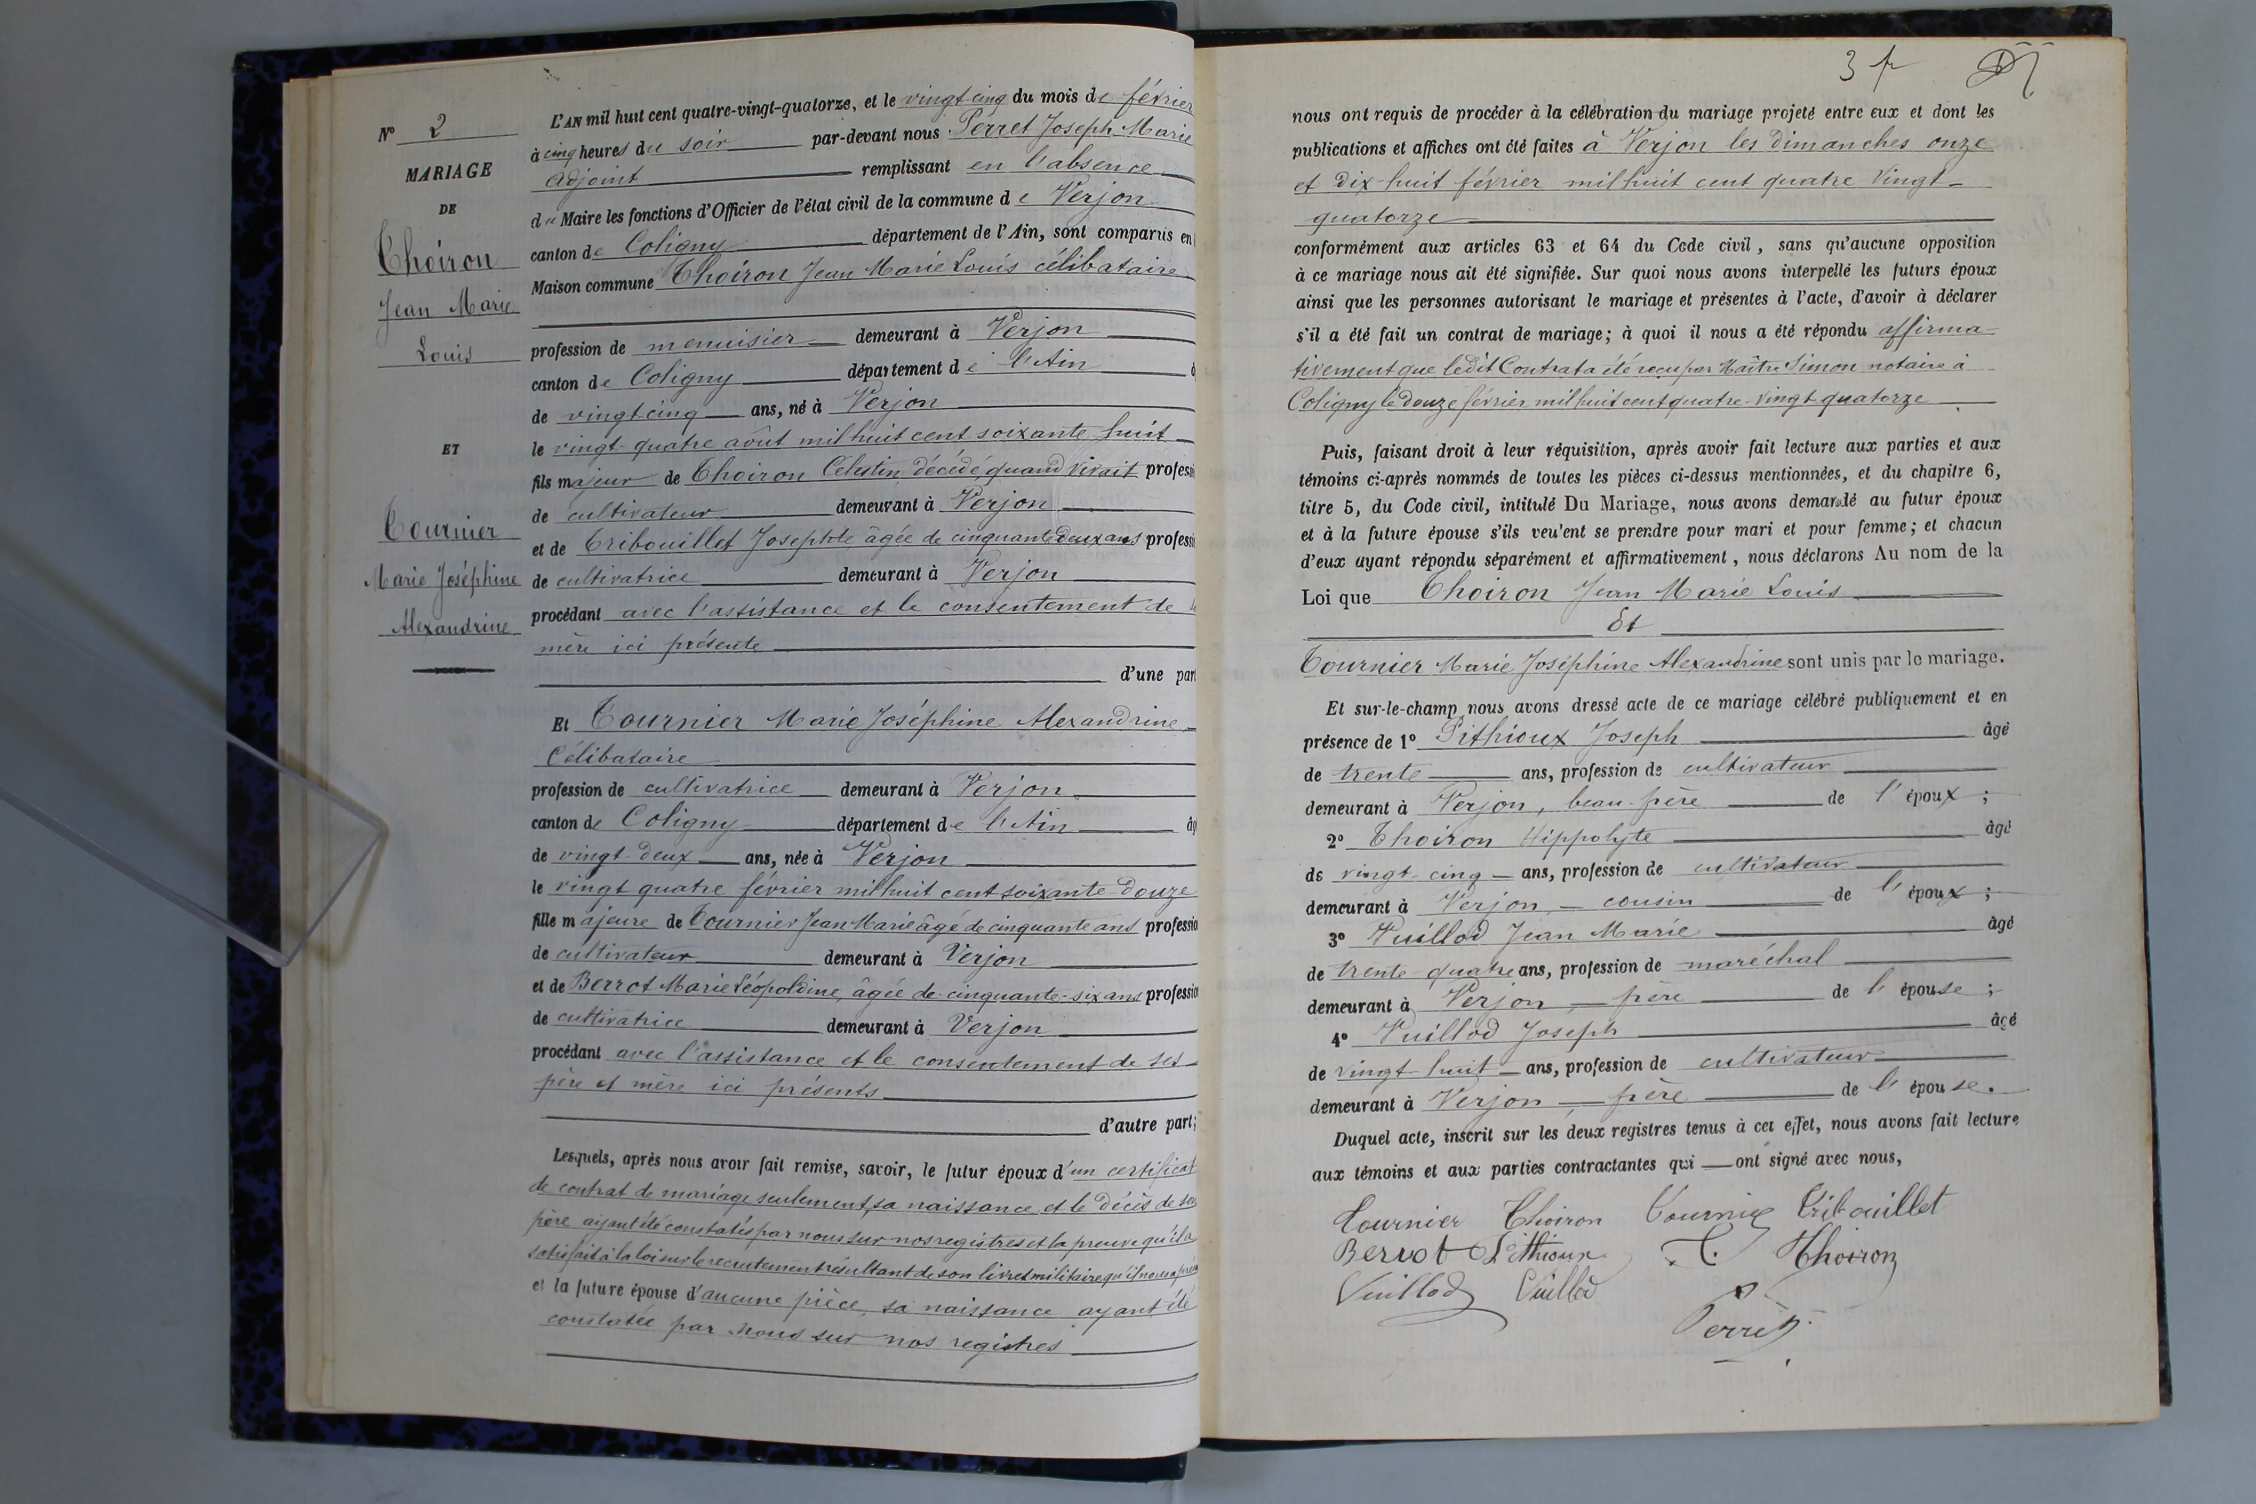 N° 2
MARIAGE
DE
Thoiron
Jean Marie
Louis
ET
Tournier
Marie Joséphine
Alexandrine
L'AN mil huit cent quatre-vingt-quatorze, et le vingt cinq du mois de février
à cinq heures du soir par-devant nous Perret Joseph Marie
adjoint remplissant en l'absence
du Maire les fonctions d'Officier de l'état civil de la commune de Verjon
canton de Coligny département de l'Ain, sont comparus en
Maison commune Thoiron Jean Marie Louis célibataire
profession de menuisier demeurant à Verjon
canton de Coligny département de l'Ain
de vingt cinq ans, né à Verjon
le vingt-quatre août mil huit cent soixante huit
fils majeur de Thoiron Célestin, décédé, quand vivait professi
de cultivateur demeurant à Verjon
et de Tribouillet Josephte âgée de cinquante deux ans professi
de cultivatrice demeurant à Verjon
procédant avec l'assistance et le consentement de
mère ici présente
d'une part
Et Tournier Marie Joséphine Alexandrine
Célibataire
profession de cultivatrice demeurant à Verjon
canton de Coligny département de l'Ain âg
de vingt-deux ans, née à Verjon
le vingt quatre février mil huit cent soixante douze
fille majeure de Tournier Jean Marie âgé de cinquante ans professio
de cultivateur demeurant à Verjon
et de Berrot Marie Léopoldine, âgée de cinquante-six ans profession
de cultivatrice demeurant à Verjon
procédant avec l'assistance et le consentement de ses
père et mère ici présents
d'autre part;
Lesquels, après nous avoir fait remise, savoir, le futur époux d'un certificat
de contrat de mariage seulement, sa naissance et le décès de son
père ayant été constatés par nous sur nos registres et la preuve qu'il a
satisfait à la loi sur le recrutement résultant de son livret militaire qu'il nous a
et la future épouse d'aucune pièce, sa naissance ayant été
constatée par nous sur nos registres
3 f
nous ont requis de procéder à la célébration du mariage projeté entre eux et dont les
publications et affiches ont été faites à Verjon les dimanches onze
et dix-huit février mil huit cent quatre vingt-
quatorze
conformément aux articles 63 et 64 du Code civil, sans qu'aucune opposition
à ce mariage nous ait été signifiée. Sur quoi nous avons interpellé les futurs époux
ainsi que les personnes autorisant le mariage et présentes à l'acte, d'avoir à déclarer
s'il a été fait un contrat de mariage; à quoi il nous a été répondu affirma
tivement que ledit Contrat a été reçu par Maître Simon notaire à
Coligny le douze février mil huit cent quatre-vingt quatorze
Puis, faisant droit à leur réquisition, après avoir fait lecture aux parties et aux
témoins ci-après nommés de toutes les pièces ci-dessus mentionnées, et du chapitre 6,
titre 5, du Code civil, intitulé Du Mariage, nous avons demandé au futur époux
et à la future épouse s'ils veulent se prendre pour mari et pour femme; et chacun
d'eux ayant répondu séparément et affirmativement, nous déclarons Au nom de la
Loi que Thoiron Jean Marie Louis
Et
Tournier Marie Joséphine Alexandrine sont unis par le mariage.
Et sur-le-champ nous avons dressé acte de ce mariage célébré publiquement et en
présence de 1° Pithioux Joseph âgé
de trente ans, profession de cultivateur
demeurant à Verjon, beau-frère de l'époux;
2° Thoiron Hippolyte âgé
de vingt-cinq ans, profession de cultivateur
demeurant à Verjon - cousin de l'époux;
3° Vuillod Jean Marie âgé
de trente-quatre ans, profession de maréchal
demeurant à Verjon - frère de l'épouse;
4° Vuillod Joseph âgé
de vingt-huit ans, profession de cultivateur
demeurant à Verjon - frère de l'épouse.
Duquel acte, inscrit sur les deux registres tenus à cet effet, nous avons fait lecture
aux témoins et aux parties contractantes qui ont signé avec nous,
Tournier Thoiron Tournier Tribouillet
Berrot Pithioux T. Thoiron
Vuillod Vuillod
Perret